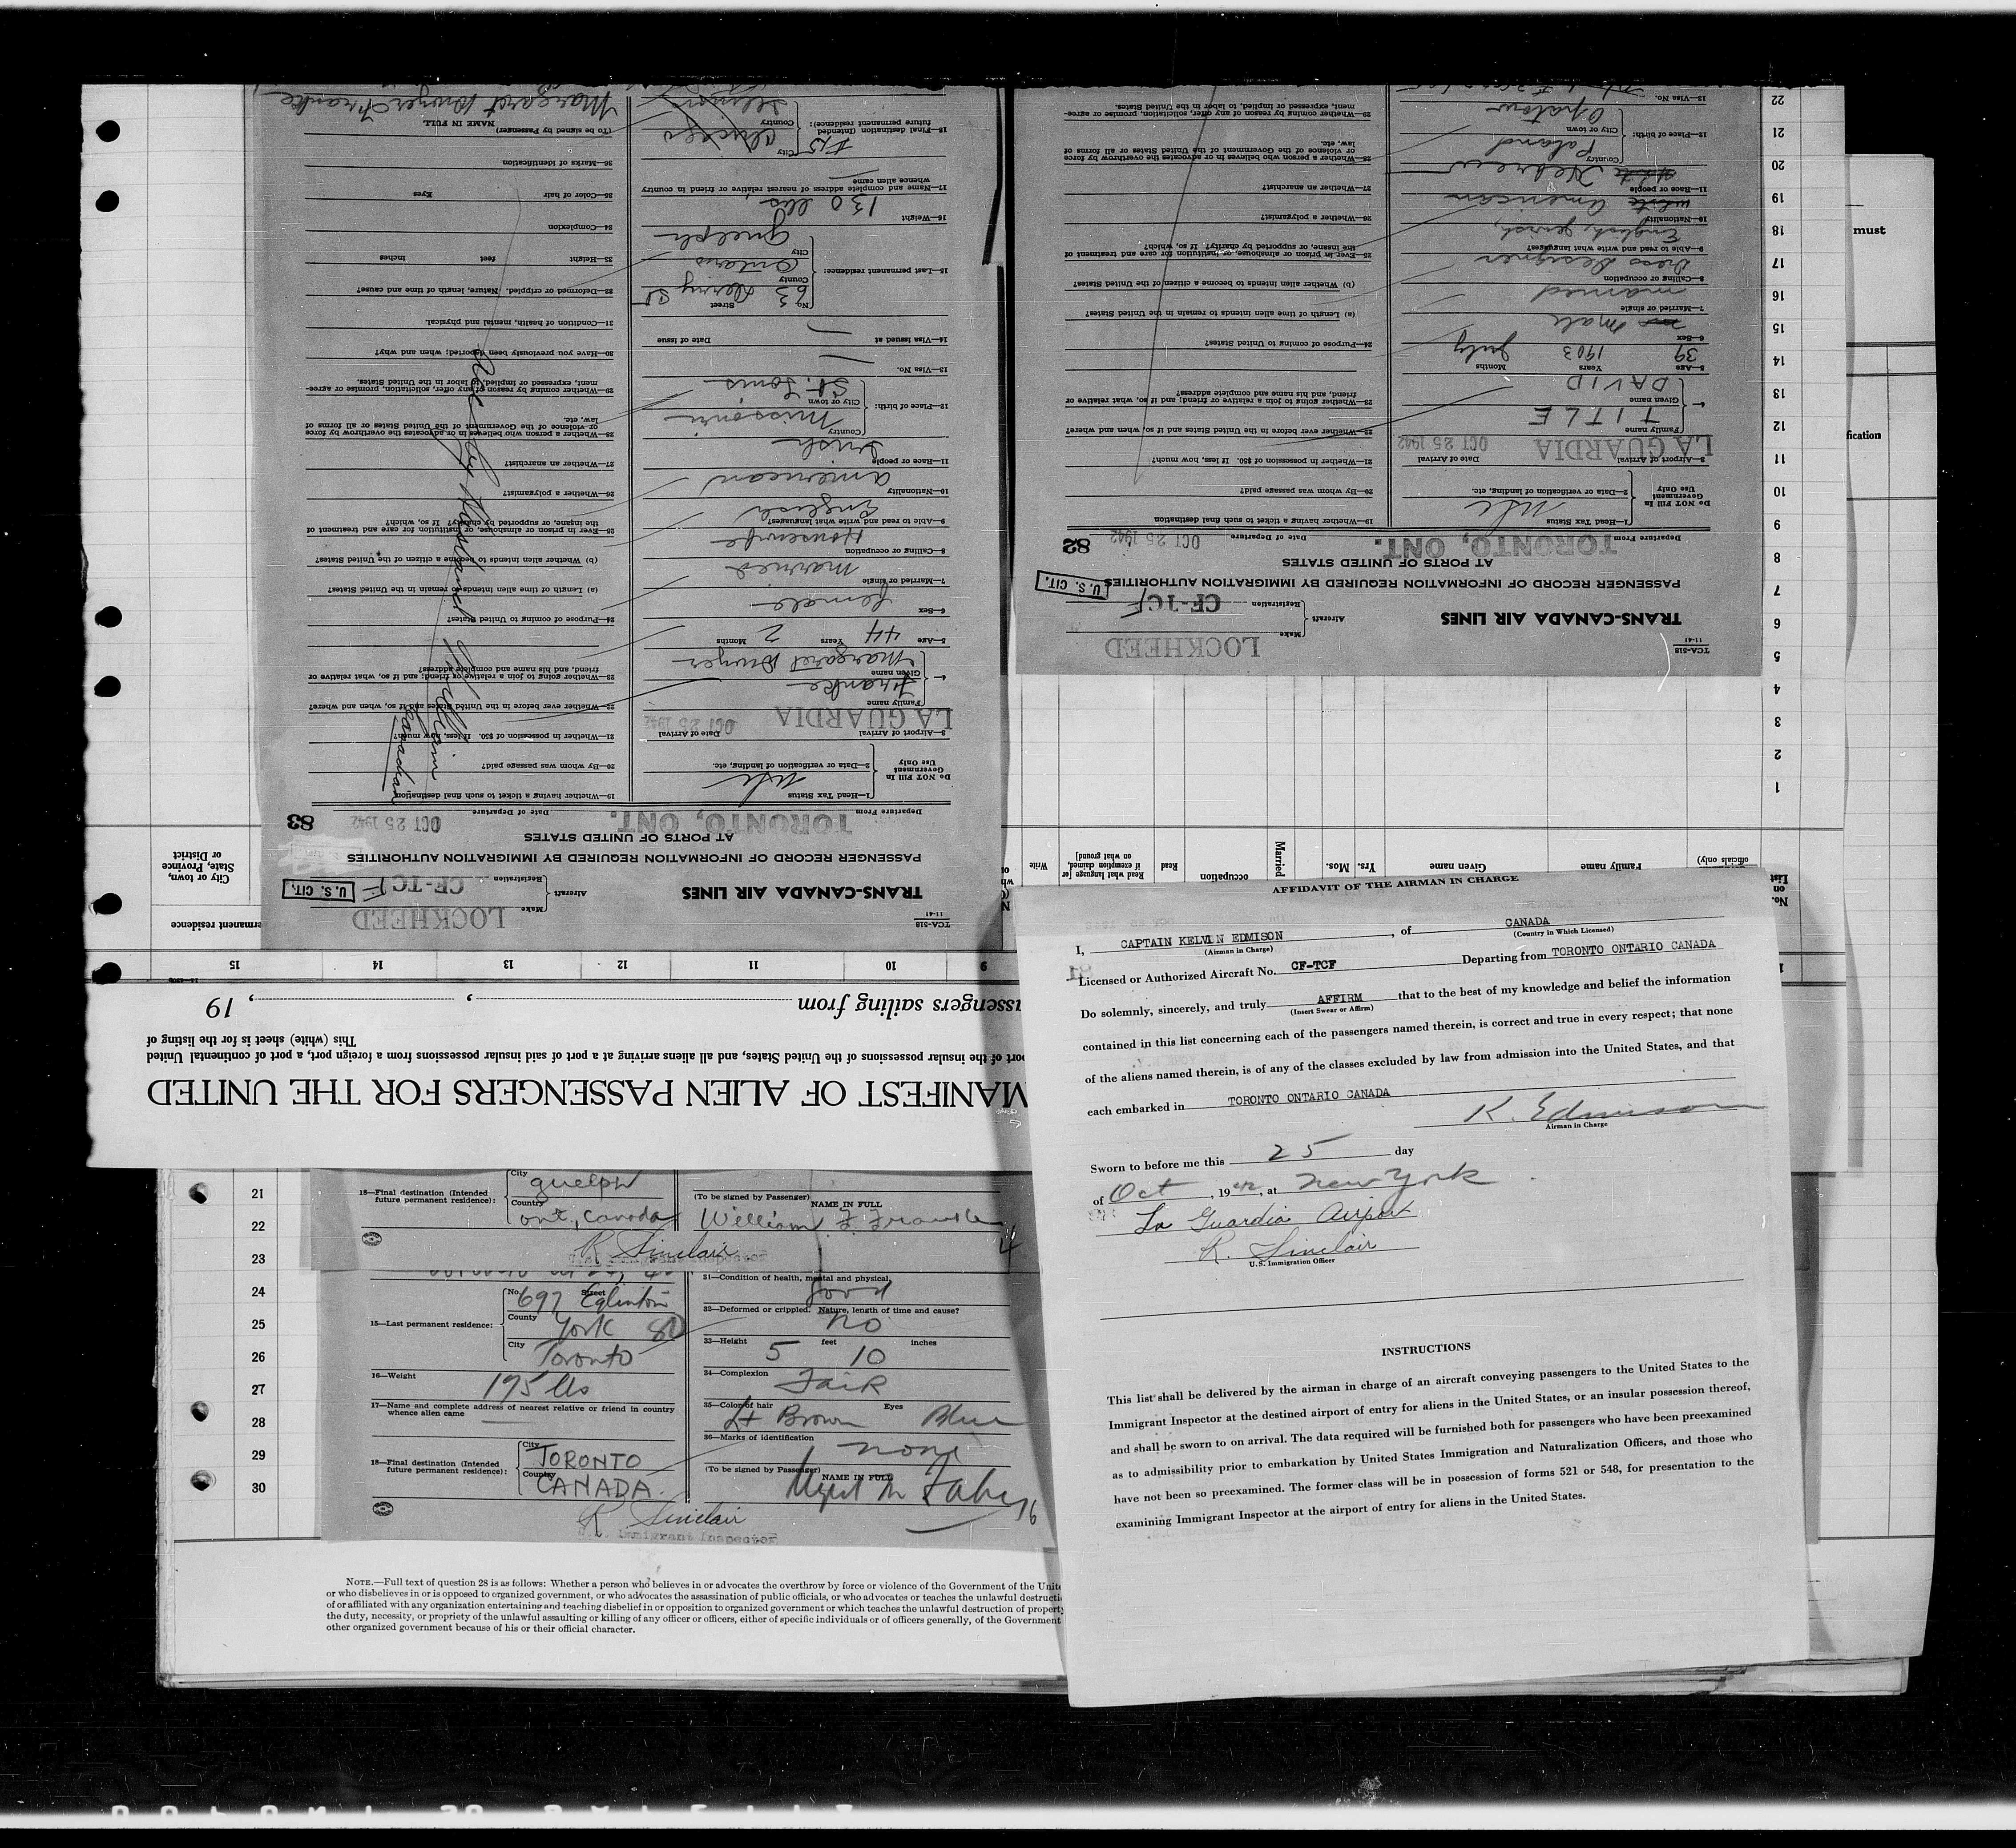 TCA-518
11-41
TRANS-CANADA AIR LINES
Aircraft
Make LOCKHEED
Registration CF-TCF
U. S. CIT.
PASSENGER RECORD OF INFORMATION REQUIRED BY IMMIGRATION AUTHORITIES
AT PORTS OF UNITED STATES
83
Departure From TORONTO, ONT.
Date of Departure OCT 25 1942
Do NOT Fill In
Government
Use Only
1—Head Tax Status
2—Data or verification of landing, etc.
3—Airport of Arrival LA GUARDIA
Date of Arrival OCT 25 1942
4—
Family name Franke
Given name Margaret Dwyer
5—Age 44 Years 2 Months
6—Sex female
7—Married or single married
8—Calling or occupation Housewife
9—Able to read and write what languages? English
10—Nationality american
11—Race or people Irish
12—Place of birth:
Country Missouri
City or town St. Louis
13—Visa No. —
14—Visa issued at — Date of issue
15—Last permanent residence:
No. 63 Street Derry St
County Ontario
City Guelph
16—Weight 130 lbs
17—Name and complete address of nearest relative or friend in country
whence alien came
18—Final destination (Intended
future permanent residence):
City Chicago
Country Illinois
19—Whether having a ticket to such final destination
20—By whom was passage paid?
21—Whether in possession of $50. If less, how much?
22—Whether ever before in the United States and if so, when and where?
23—Whether going to join a relative or friend; and if so, what relative or
friend, and his name and complete address?
24—Purpose of coming to United States?
(a) Length of time alien intends to remain in the United States?
(b) Whether alien intends to become a citizen of the United States?
25—Ever in prison or almshouse, or institution for care and treatment of
the insane, or supported by charity? If so, which?
26—Whether a polygamist?
27—Whether an anarchist?
28—Whether a person who believes in or advocates the overthrow by force
or violence of the Government of the United States or all forms of
law, etc.
29—Whether coming by reason of any offer, solicitation, promise or agree-
ment, expressed or implied, to labor in the United States.
30—Have you previously been deported; when and why?
31—Condition of health, mental and physical.
32—Deformed or crippled. Nature, length of time and cause?
33—Height feet inches
34—Complexion
35—Color of hair Eyes
36—Marks of identification
(To be signed by Passenger)
NAME IN FULL
Margaret Dwyer Franke
by Husband William
Canadian
TCA-518
11-41
TRANS-CANADA AIR LINES
Aircraft
Make LOCKHEED
Registration CF-TCF
U. S. CIT.
PASSENGER RECORD OF INFORMATION REQUIRED BY IMMIGRATION AUTHORITIES
AT PORTS OF UNITED STATES
82
Departure From TORONTO, ONT.
Date of Departure OCT 25 1942
Do NOT Fill In
Government
Use Only
1—Head Tax Status
2—Data or verification of landing, etc.
3—Airport of Arrival LA GUARDIA
Date of Arrival OCT 25 1942
4—
Family name TITLE
Given name DAVID
5—Age 39 Years 1903 Months July
6—Sex male
7—Married or single married
8—Calling or occupation Dress Designer
9—Able to read and write what languages? English, Jewish,
10—Nationality white American
11—Race or people white Hebrew
12—Place of birth:
Country Poland
City or town Opatow
13—Visa No.
19—Whether having a ticket to such final destination
20—By whom was passage paid?
21—Whether in possession of $50. If less, how much?
22—Whether ever before in the United States and if so, when and where?
23—Whether going to join a relative or friend; and if so, what relative or
friend, and his name and complete address?
24—Purpose of coming to United States?
(a) Length of time alien intends to remain in the United States?
(b) Whether alien intends to become a citizen of the United States?
25—Ever in prison or almshouse, or institution for care and treatment of
the insane, or supported by charity? If so, which?
26—Whether a polygamist?
27—Whether an anarchist?
28—Whether a person who believes in or advocates the overthrow by force
or violence of the Government of the United States or all forms of
law, etc.
29—Whether coming by reason of any offer, solicitation, promise or agree-
ment, expressed or implied, to labor in the United States.
1
2
3
4
5
6
7
8
9
10
11
12
13
14
15
16
17
18
19
20
21
22
must
fication
MANIFEST OF ALIEN PASSENGERS FOR THE UNITED
port of the insular possessions of the United States, and all aliens arriving at a port of said insular possessions from a foreign port, a port of continental United
This (white) sheet is for the listing of
ssengers sailing from , , 19
9 10 11 12 13 14 15
No.
on
List
officials only)
Family name
Given name
Yrs. Mos.
Married
occupation
Read
Read what language [or
if exemption claimed,
on what ground]
Write
permanent residence
City or town,
State, Province
or District
AFFIDAVIT OF THE AIRMAN IN CHARGE
I, CAPTAIN KELVIN EDMISON, of CANADA
(Airman in Charge) (Country in Which Licensed)
Licensed or Authorized Aircraft No. CF-TCF Departing from TORONTO ONTARIO CANADA
Do solemnly, sincerely, and truly AFFIRM that to the best of my knowledge and belief the information
(Insert Swear or Affirm)
contained in this list concerning each of the passengers named therein, is correct and true in every respect; that none
of the aliens named therein, is of any of the classes excluded by law from admission into the United States, and that
each embarked in TORONTO ONTARIO CANADA
K. Edmison
Airman in Charge
Sworn to before me this 25 day
of Oct, 1942, at New York
La Guardia Airport
R. Sinclair
U.S. Immigration Officer
INSTRUCTIONS
This list shall be delivered by the airman in charge of an aircraft conveying passengers to the United States to the
Immigrant Inspector at the destined airport of entry for aliens in the United States, or an insular possession thereof,
and shall be sworn to on arrival. The data required will be furnished both for passengers who have been preexamined
as to admissibility prior to embarkation by United States Immigration and Naturalization Officers, and those who
have not been so preexamined. The former class will be in possession of forms 521 or 548, for presentation to the
examining Immigrant Inspector at the airport of entry for aliens in the United States.
21
22
23
24
25
26
27
28
29
30
18—Final destination (Intended
future permanent residence):
City Guelph
Country Ont, Canada
(To be signed by Passenger)
NAME IN FULL
William F. Franke
R Sinclair
Immigrant Inspector
15—Last permanent residence:
No. 697 Street Eglinton
County York
City Toronto
16—Weight 195 lbs
17—Name and complete address of nearest relative or friend in country
whence alien came
18—Final destination (Intended
future permanent residence):
City TORONTO
Country CANADA.
31—Condition of health, mental and physical. Good
32—Deformed or crippled. Nature, length of time and cause?
No
33—Height 5 feet 10 inches
34—Complexion Fair
35—Color of hair Lt Brown Eyes Blue
36—Marks of identification none
(To be signed by Passenger)
NAME IN FULL
R Sinclair
U.S. Immigrant Inspector
NOTE.—Full text of question 28 is as follows: Whether a person who believes in or advocates the overthrow by force or violence of the Government of the Unite
or who disbelieves in or is opposed to organized government, or who advocates the assassination of public officials, or who advocates or teaches the unlawful destructi
of or affiliated with any organization entertaining and teaching disbelief in or opposition to organized government or which teaches the unlawful destruction of property
the duty, necessity, or propriety of the unlawful assaulting or killing of any officer or officers, either of specific individuals or of officers generally, of the Government
other organized government because of his or their official character.